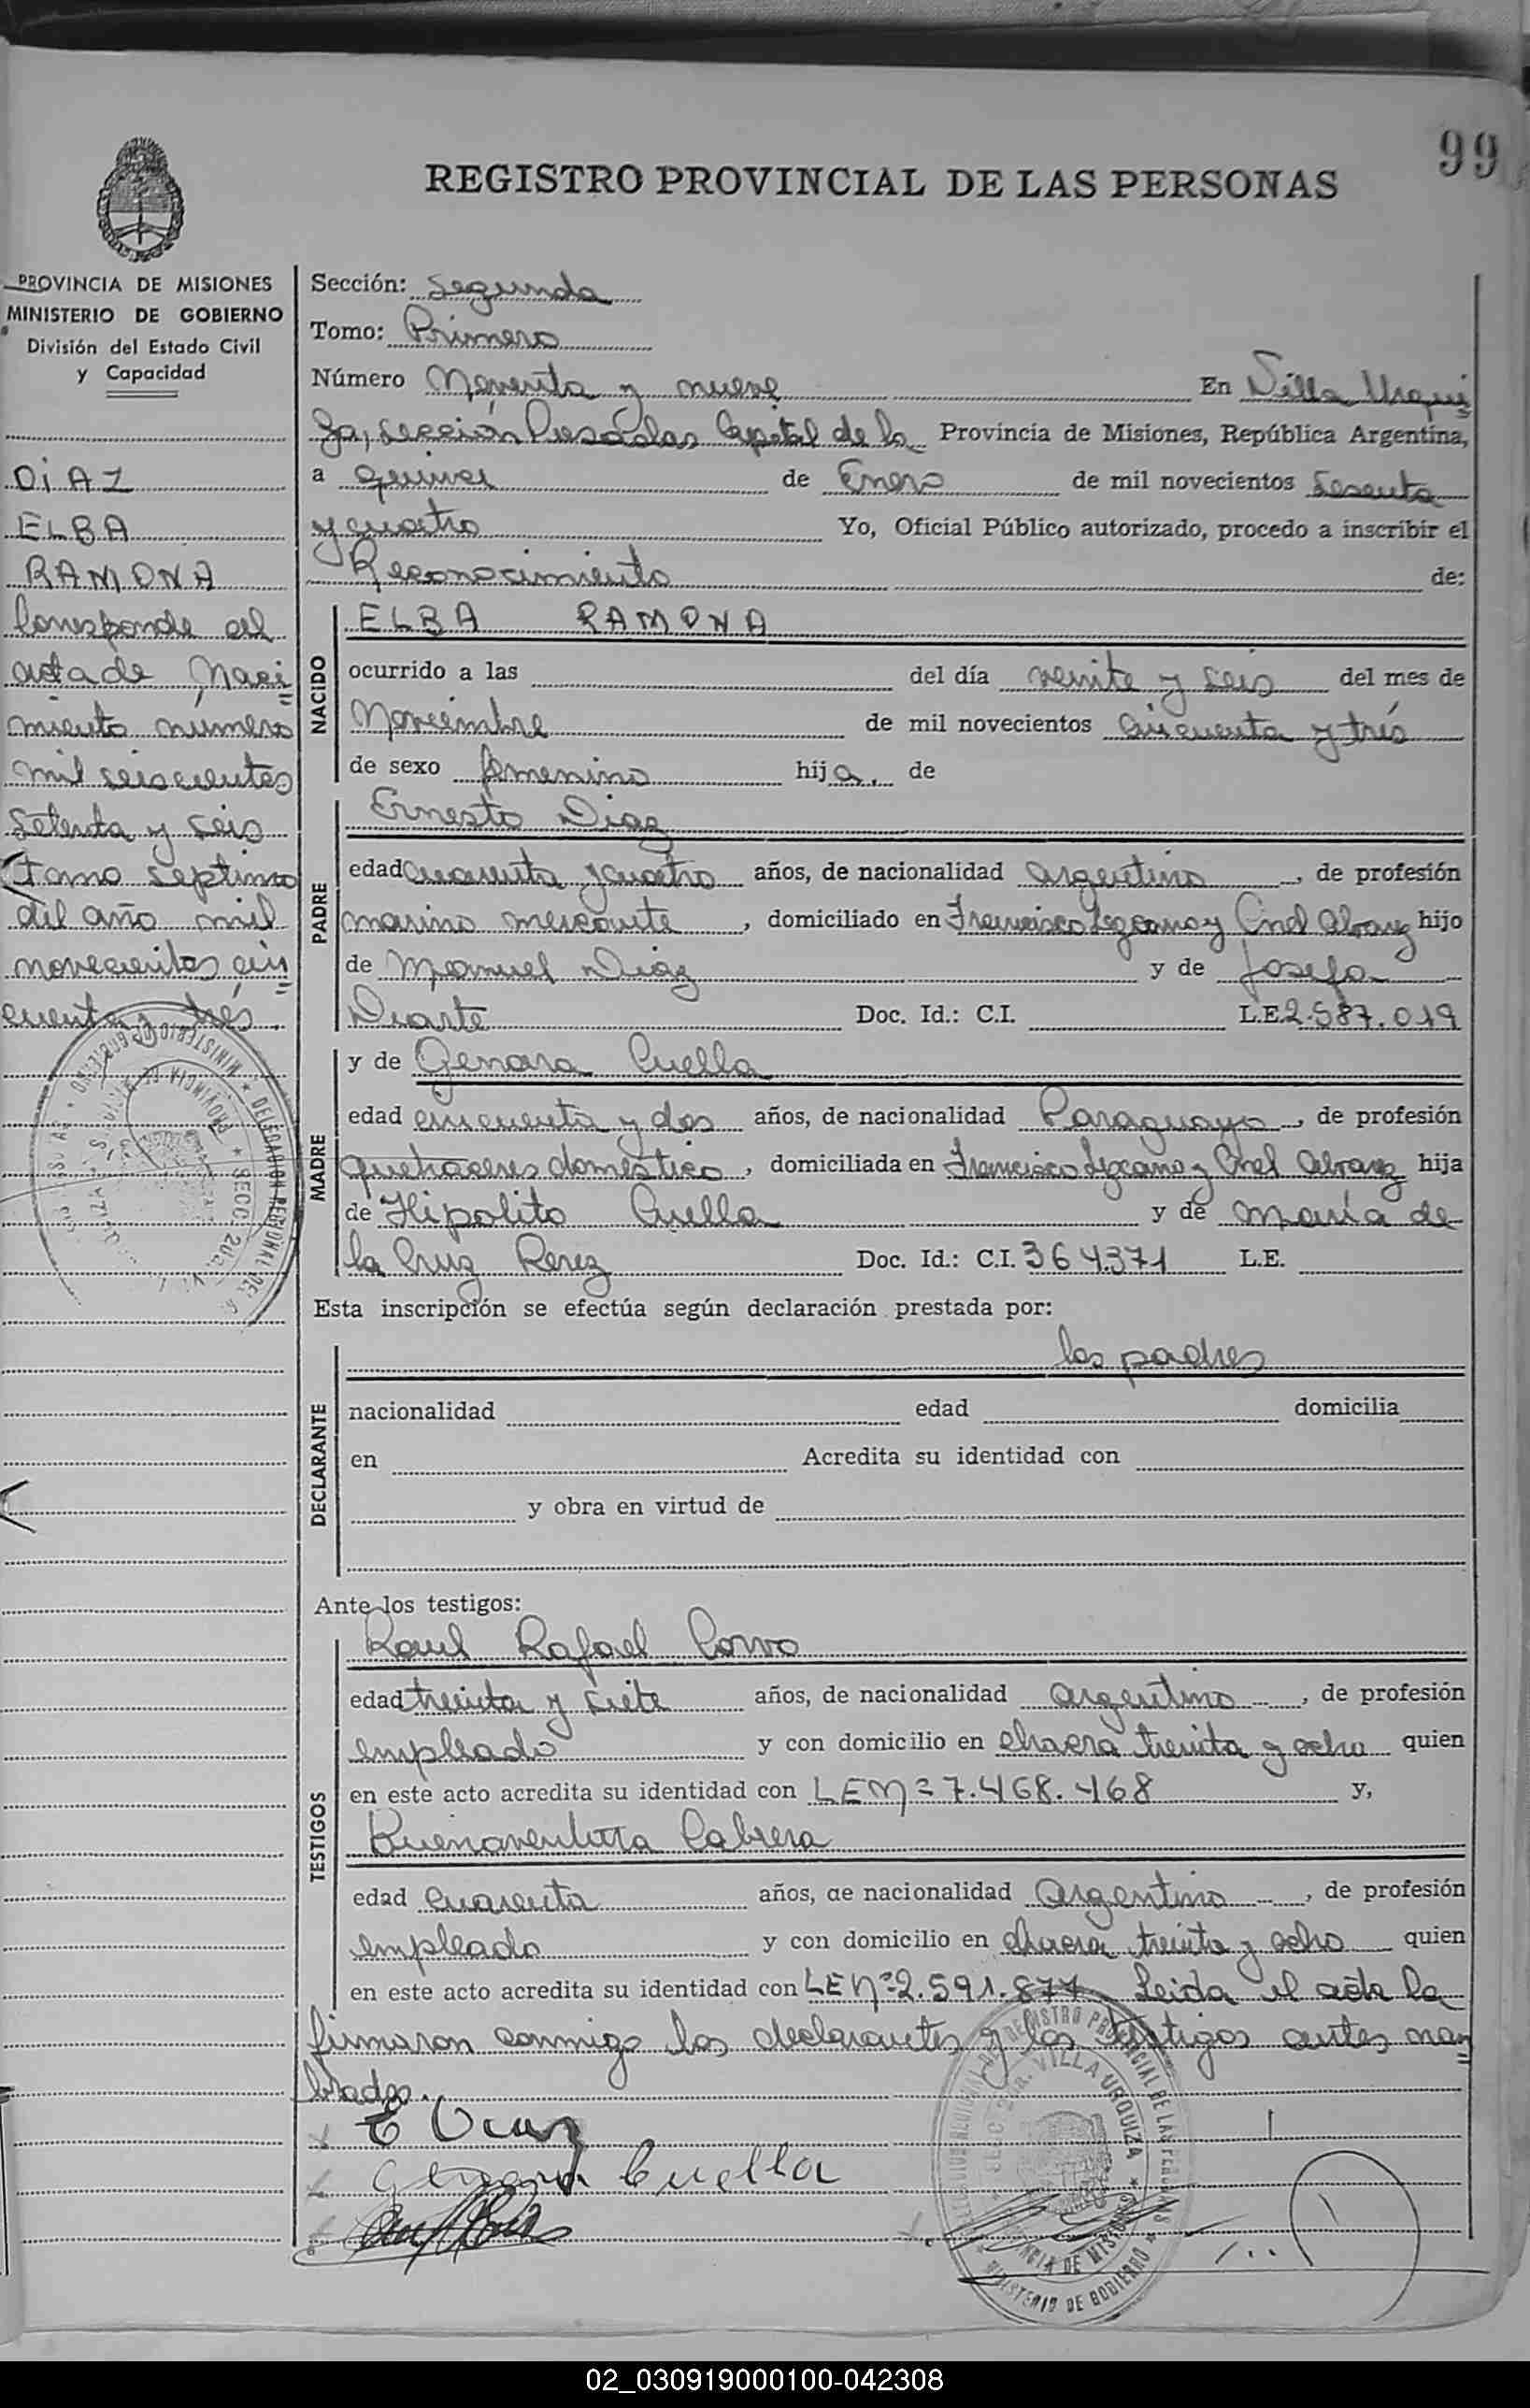 99
REGISTRO PROVINCIAL DE LAS PERSONAS
PROVINCIA DE MISIONES
MINISTERIO DE GOBIERNO
División del Estado Civil
y Capacidad
DiAZ
ELBA
RAMONA
Corresponde al
acta de Naci
miento número
mil seiscientos
setenta y seis
tomo septimo
del año mil
novecientos cin
cuenta y trés.
Sección: Segunda
Tomo: Primero
Número Noventa y nueve En Villa Urqui
za, Sección Posadas Capital de la Provincia de Misiones, República Argentina,
a quince de Enero de mil novecientos sesenta
y cuatro Yo, Oficial Público autorizado, procedo a inscribir el
Reconocimiento de:
NACIDO
ELBA RAMONA
ocurrido a las del día veinte y seis del mes de
Noviembre de mil novecientos cincuenta y trés
de sexo femenino hija. de
PADRE
Ernesto Diaz
edad cuarenta y cuatro años, de nacionalidad argentino, de profesión
marino mercante, domiciliado en Francisco Lezcano y Cnel Alvarez hijo
de Manuel Diaz y de Josefa
Duarte Doc. Id.: C.I. L.E. 2.587.019
MADRE
y de Genara Cuella
edad cincuenta y dos años, de nacionalidad Paraguaya, de profesión
quehaceres doméstico, domiciliada en Francisco Lezcano y Cnel Alvarez hija
de Hipolito Cuella y de María de
la Cruz Perez Doc. Id.: C.I. 364.371 L.E.
Esta inscripción se efectúa según declaración prestada por:
DECLARANTE
los padres
nacionalidad edad domicilia
en Acredita su identidad con
y obra en virtud de
Ante los testigos:
TESTIGOS
Raul Rafael Corvo
edad treinta y siete años, de nacionalidad argentino, de profesión
empleado y con domicilio en chacra treinta y ocho quien
en este acto acredita su identidad con LE Nº 7.468.468 y,
Buenaventura Cabrera
edad cuarenta años, de nacionalidad Argentino, de profesión
empleado y con domicilio en chacra treinta y ocho quien
en este acto acredita su identidad con LE Nº 2.591.877 Leida el acta la
firmaron conmigo los declarantes y los testigos antes nom
brados.
E Diaz
Genara Cuella
VILLA URQUIZA
MINISTERIO DE GOBIERNO
02_030919000100-042308